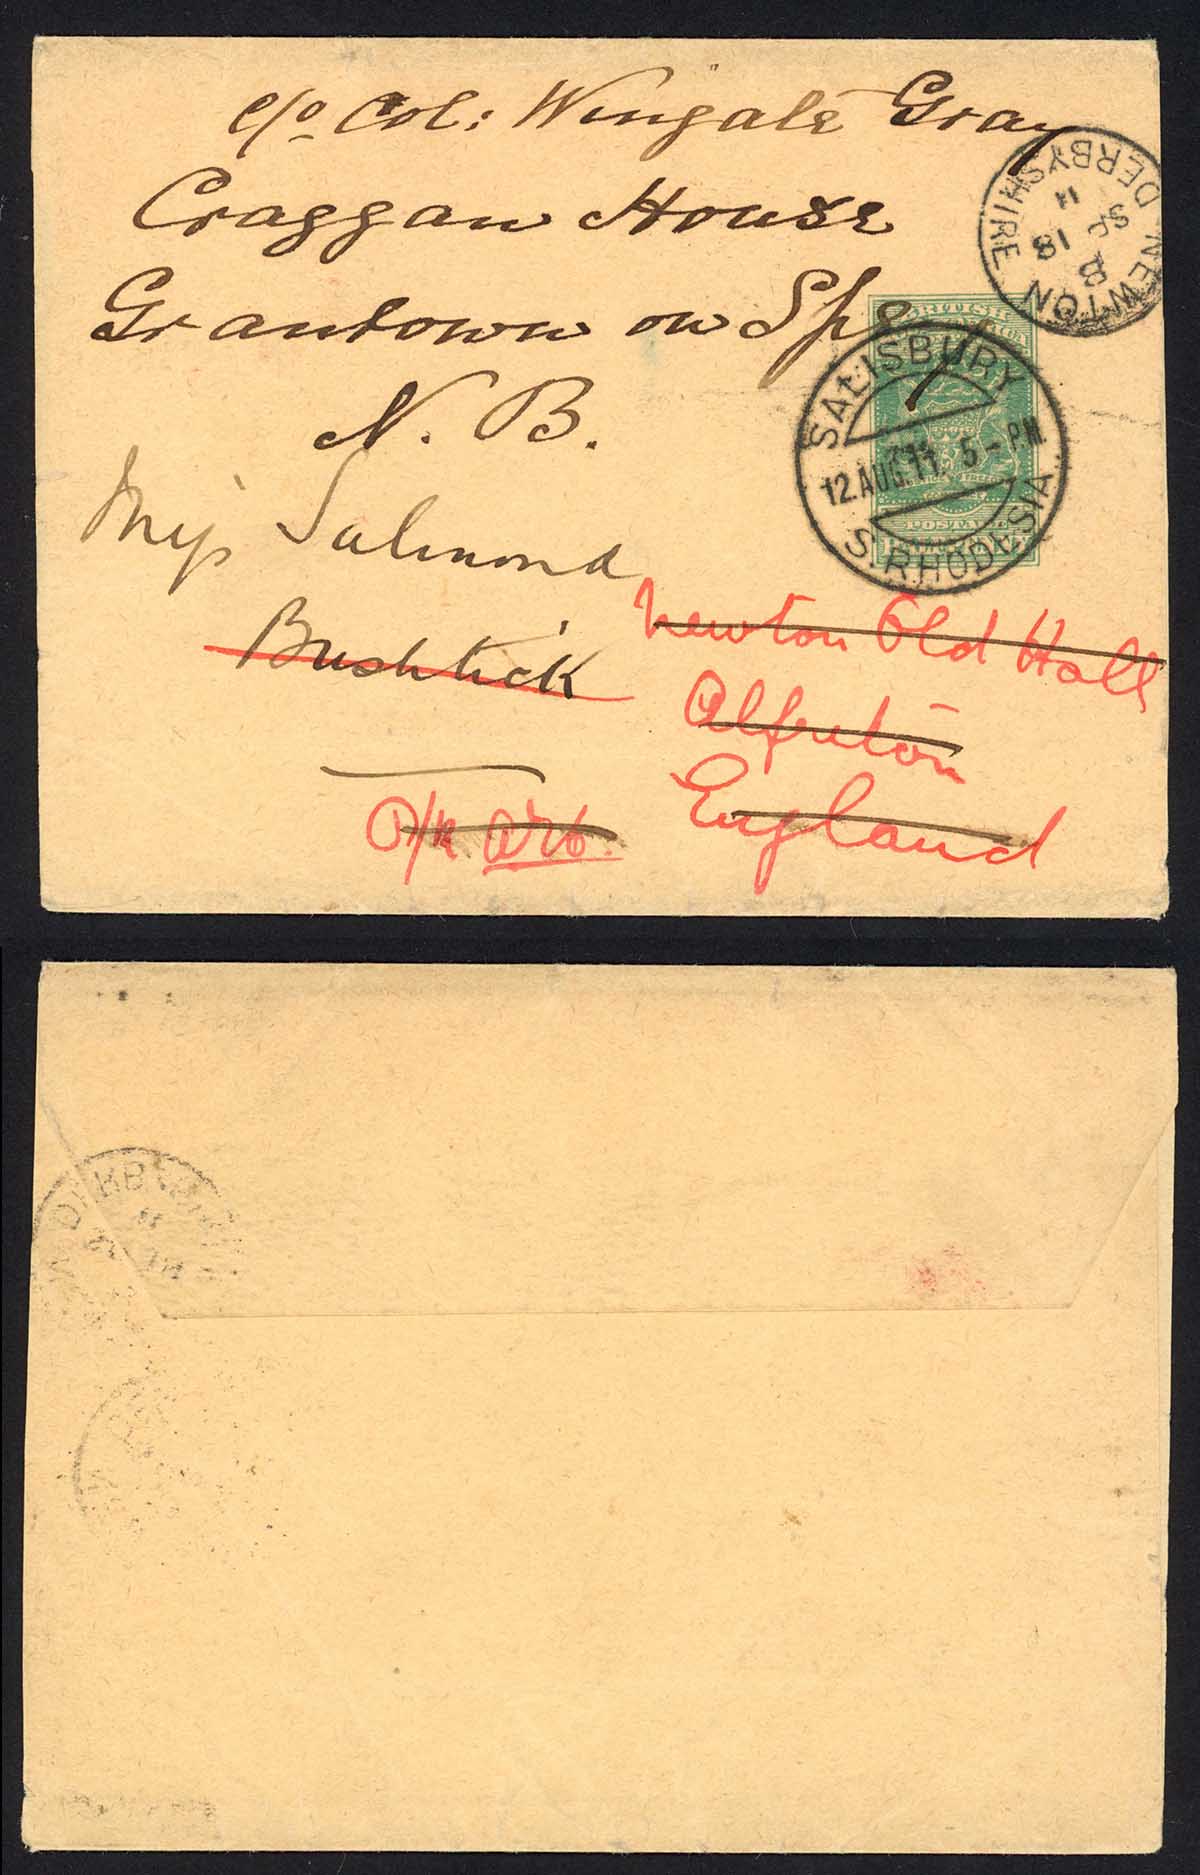 c/o Col: Wingate Gray
Craggan House
Grantown on Spey
N. B.
Miss Salmond
Bushtick
Newton Old Hall
Alfreton
England
NEWTON DERBYSHIRE
8
SP 18
11
BRITISH
SALISBURY
12. AUG. 11. 5 - P.M.
S. RHODESIA.
POSTAGE
DERBY
11